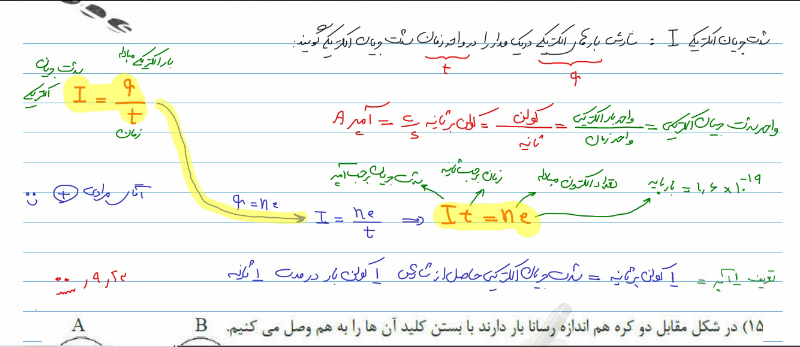 شدت جریان الکتریکی I : شارش بارهای الکتریکی در یک مدار را در واحد زمان شدت جریان الکتریکی گویند:
t
q
بار الکتریکی مبادله
شدت جریان الکتریکی
I = q/t
زمان
واحد شدت جریان الکتریکی = واحد بار الکتریکی / واحد زمان = کولن / ثانیه = کولن بر ثانیه C/s = آمپر A
شدت جریان برحسب آمپر
زمان برحسب ثانیه
تعداد الکترون مبادله
بار پایه = 1,6 × 10⁻¹⁹
آقای مرادی +
q = ne
I = ne/t ⇒ It = ne
تعریف 1 آمپر = 1 کولن بر ثانیه = شدت جریان الکتریکی حاصل از شارش 1 کولن بار در مدت 1 ثانیه
۱۵) در شکل مقابل دو کره هم اندازه رسانا بار دارند با بستن کلید آن ها را به هم وصل می کنیم.
A B